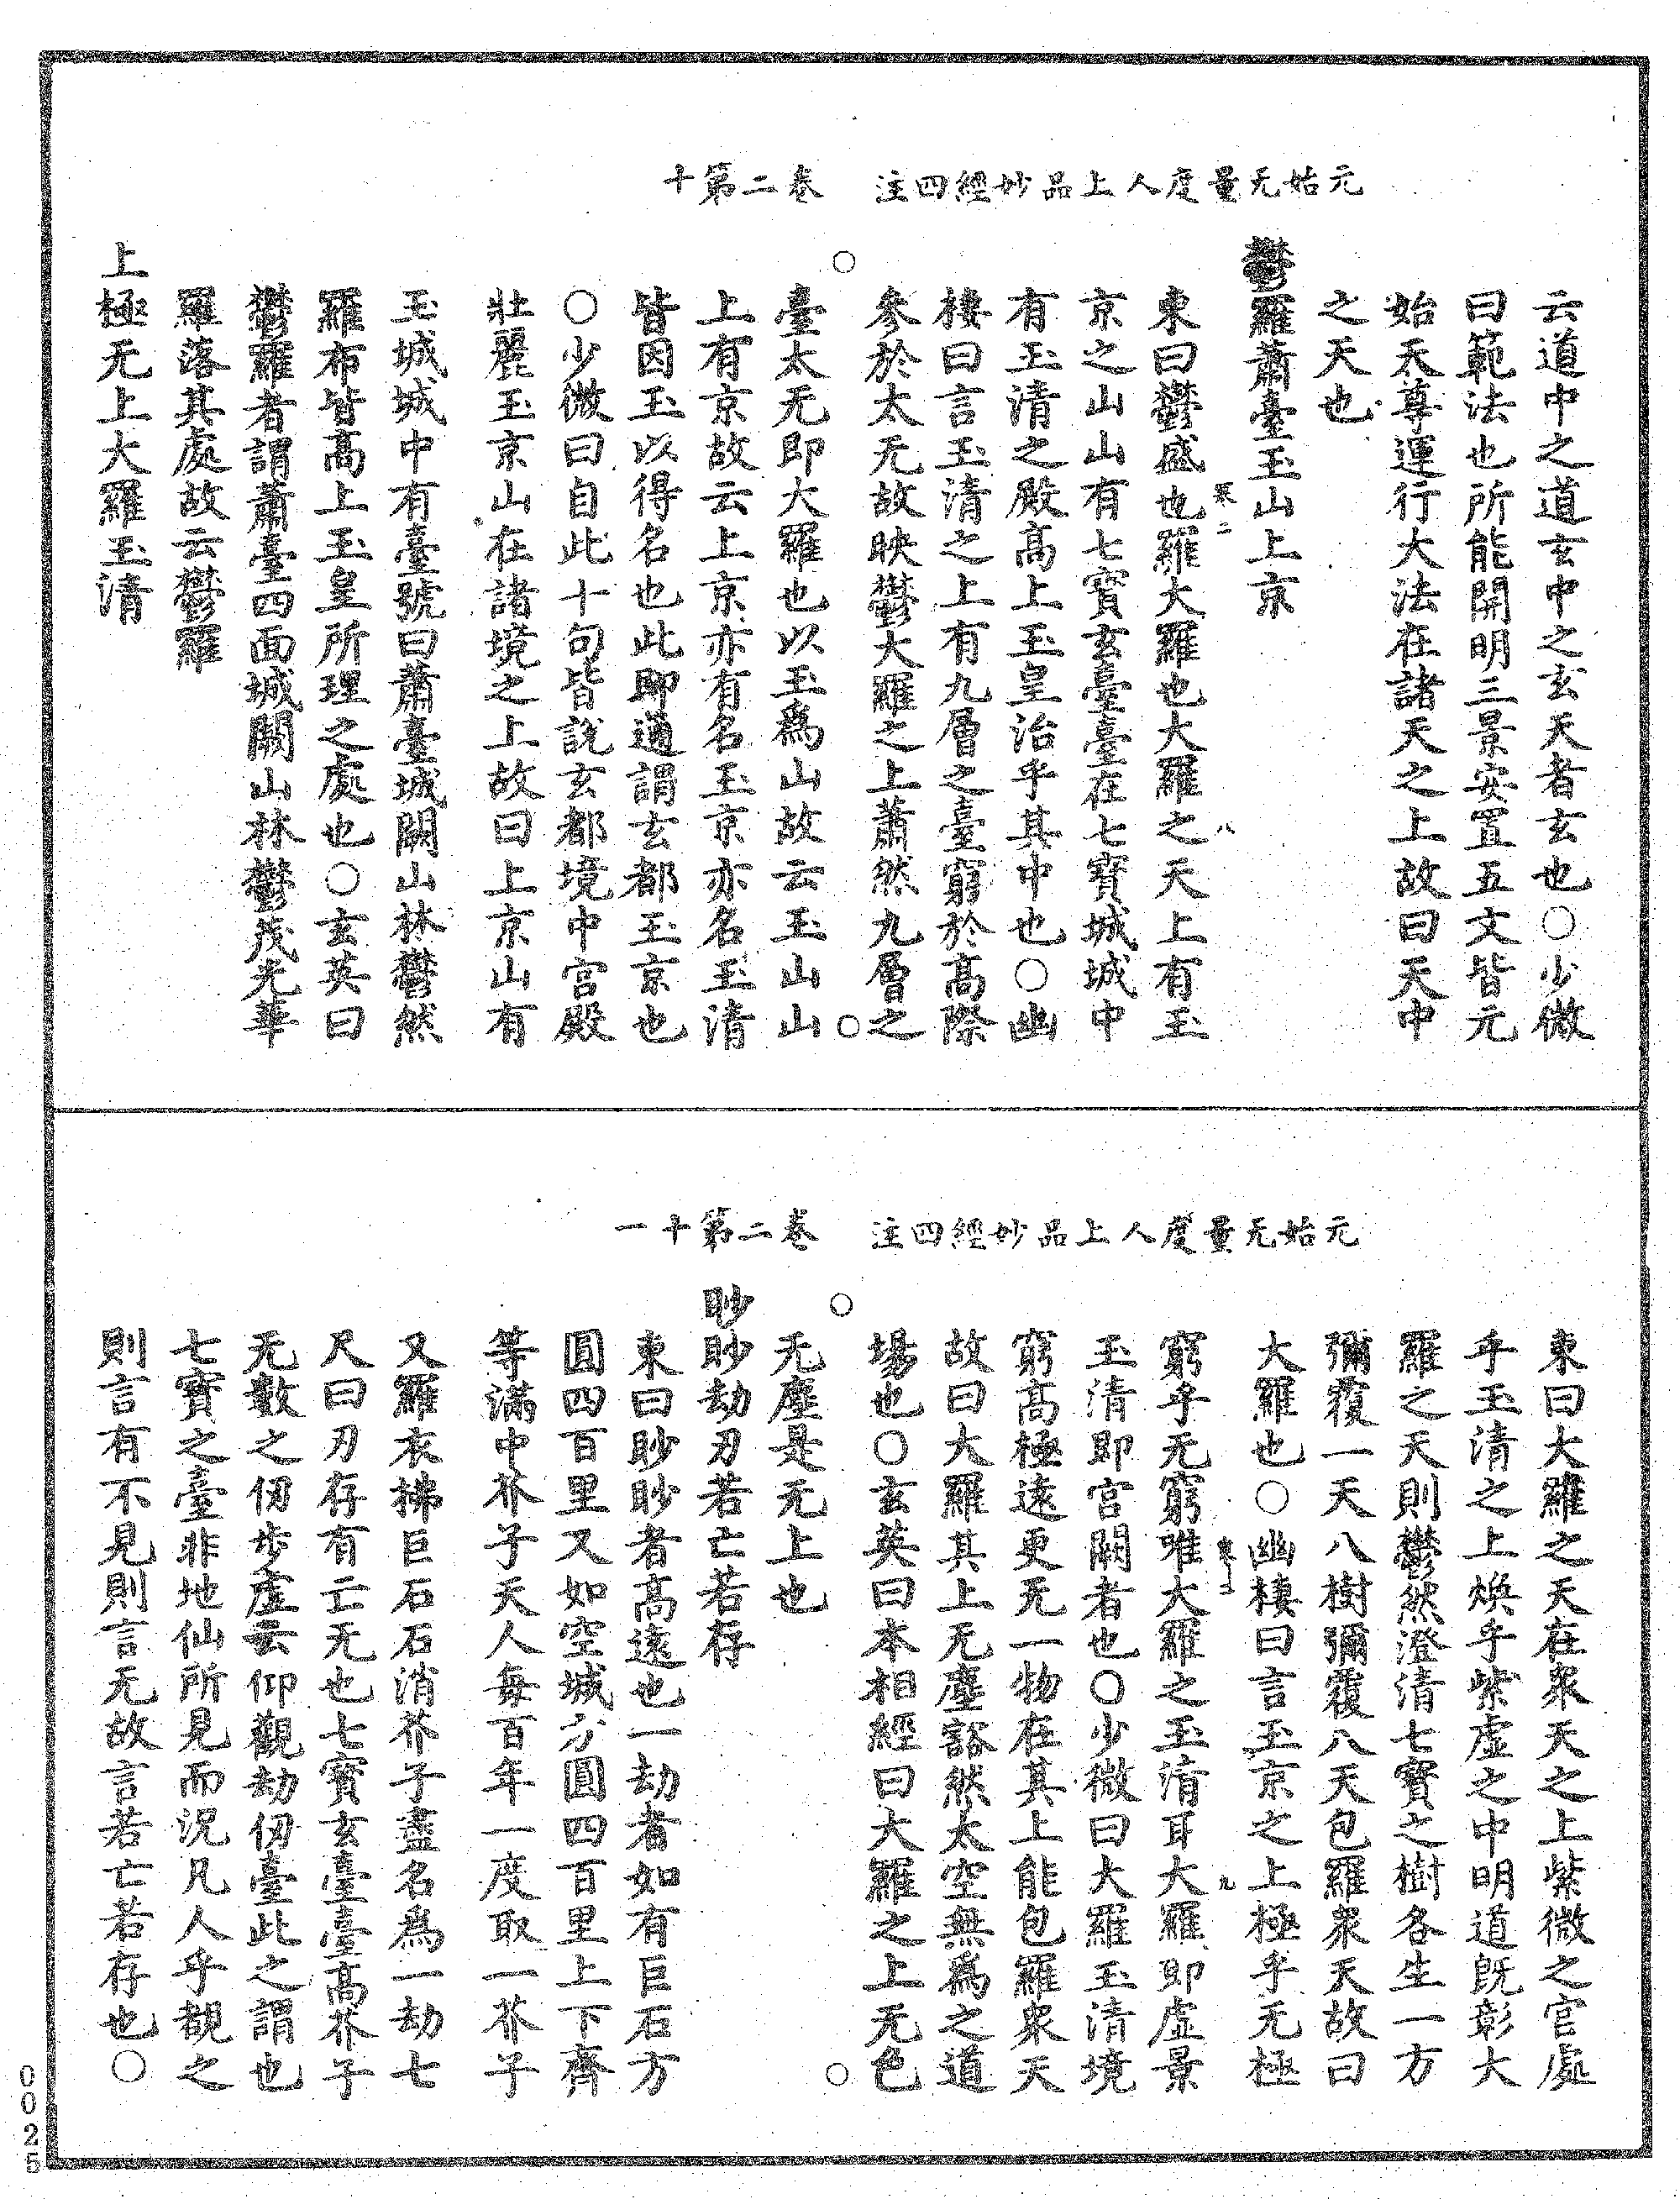 元始无量度人上品妙經四注　卷二第十
云道中之道玄中之玄天者玄也○少微
曰範法也所能開明三景安置五文皆元
始天尊運行大法在諸天之上故曰天中
之天也
鬱羅蕭臺玉山上京
東曰鬱盛也羅大羅也大羅之天上有玉
京之山山有七寶玄臺臺在七寶城城中
有玉清之殿高上玉皇治乎其中也○幽
棲曰言玉清之上有九層之臺窮於高際
參於太无故映鬱大羅之上蕭然九層之
臺太无即大羅也以玉爲山故云玉山山
上有京故云上京亦有名玉京亦名玉清
皆因玉以得名也此即通謂玄都玉京也
○少微曰自此十句皆說玄都境中宮殿
壯麗玉京山在諸境之上故曰上京山有
玉城城中有臺號曰蕭臺城闕山林鬱然
羅布皆高上玉皇所理之處也○玄英曰
鬱羅者謂蕭臺四面城闕山林鬱茂光華
羅落其處故云鬱羅
上極无上大羅玉清
元始无量度人上品妙經四注　卷二第十一
東曰大羅之天在衆天之上紫微之官處
乎玉清之上煥乎紫虛之中明道旣彰大
羅之天則鬱然澄清七寶之樹各生一方
彌覆一天八樹彌覆八天包羅衆天故曰
大羅也○幽棲曰言玉京之上極乎无極
窮乎无窮唯大羅之玉清耳大羅即虛景
玉清即宮闕者也○少微曰大羅玉清境
窮高極遠更无一物在其上能包羅衆天
故曰大羅其上无塵豁然太空無爲之道
場也○玄英曰本相經曰大羅之上无色
无塵是无上也
眇眇劫刃若亡若存
東曰眇眇者高遠也一劫者如有巨石方
圓四百里又如空城方圓四百里上下齊
等滿中芥子天人每百年一度取一芥子
又羅衣拂巨石石消芥子盡名爲一劫七
尺曰刃存有亡无也七寶玄臺臺高芥子
无數之仞步虛云仰觀劫仞臺此之謂也
七寶之臺非地仙所見而況凡人乎覩之
則言有不見則言无故言若亡若存也○
0025